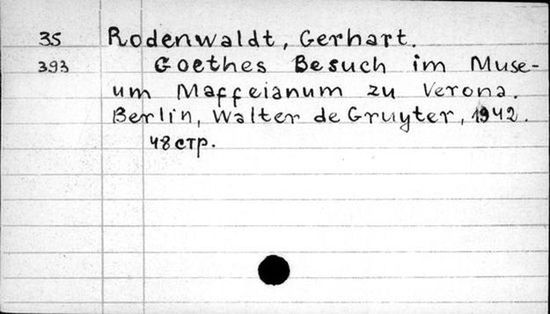 35 Rodenwaldt, Gerhart.
393 Goethes Besuch im Muse-
um Maffeianum zu Verona.
Berlin, Walter de Gruyter, 1942.
48 стр.